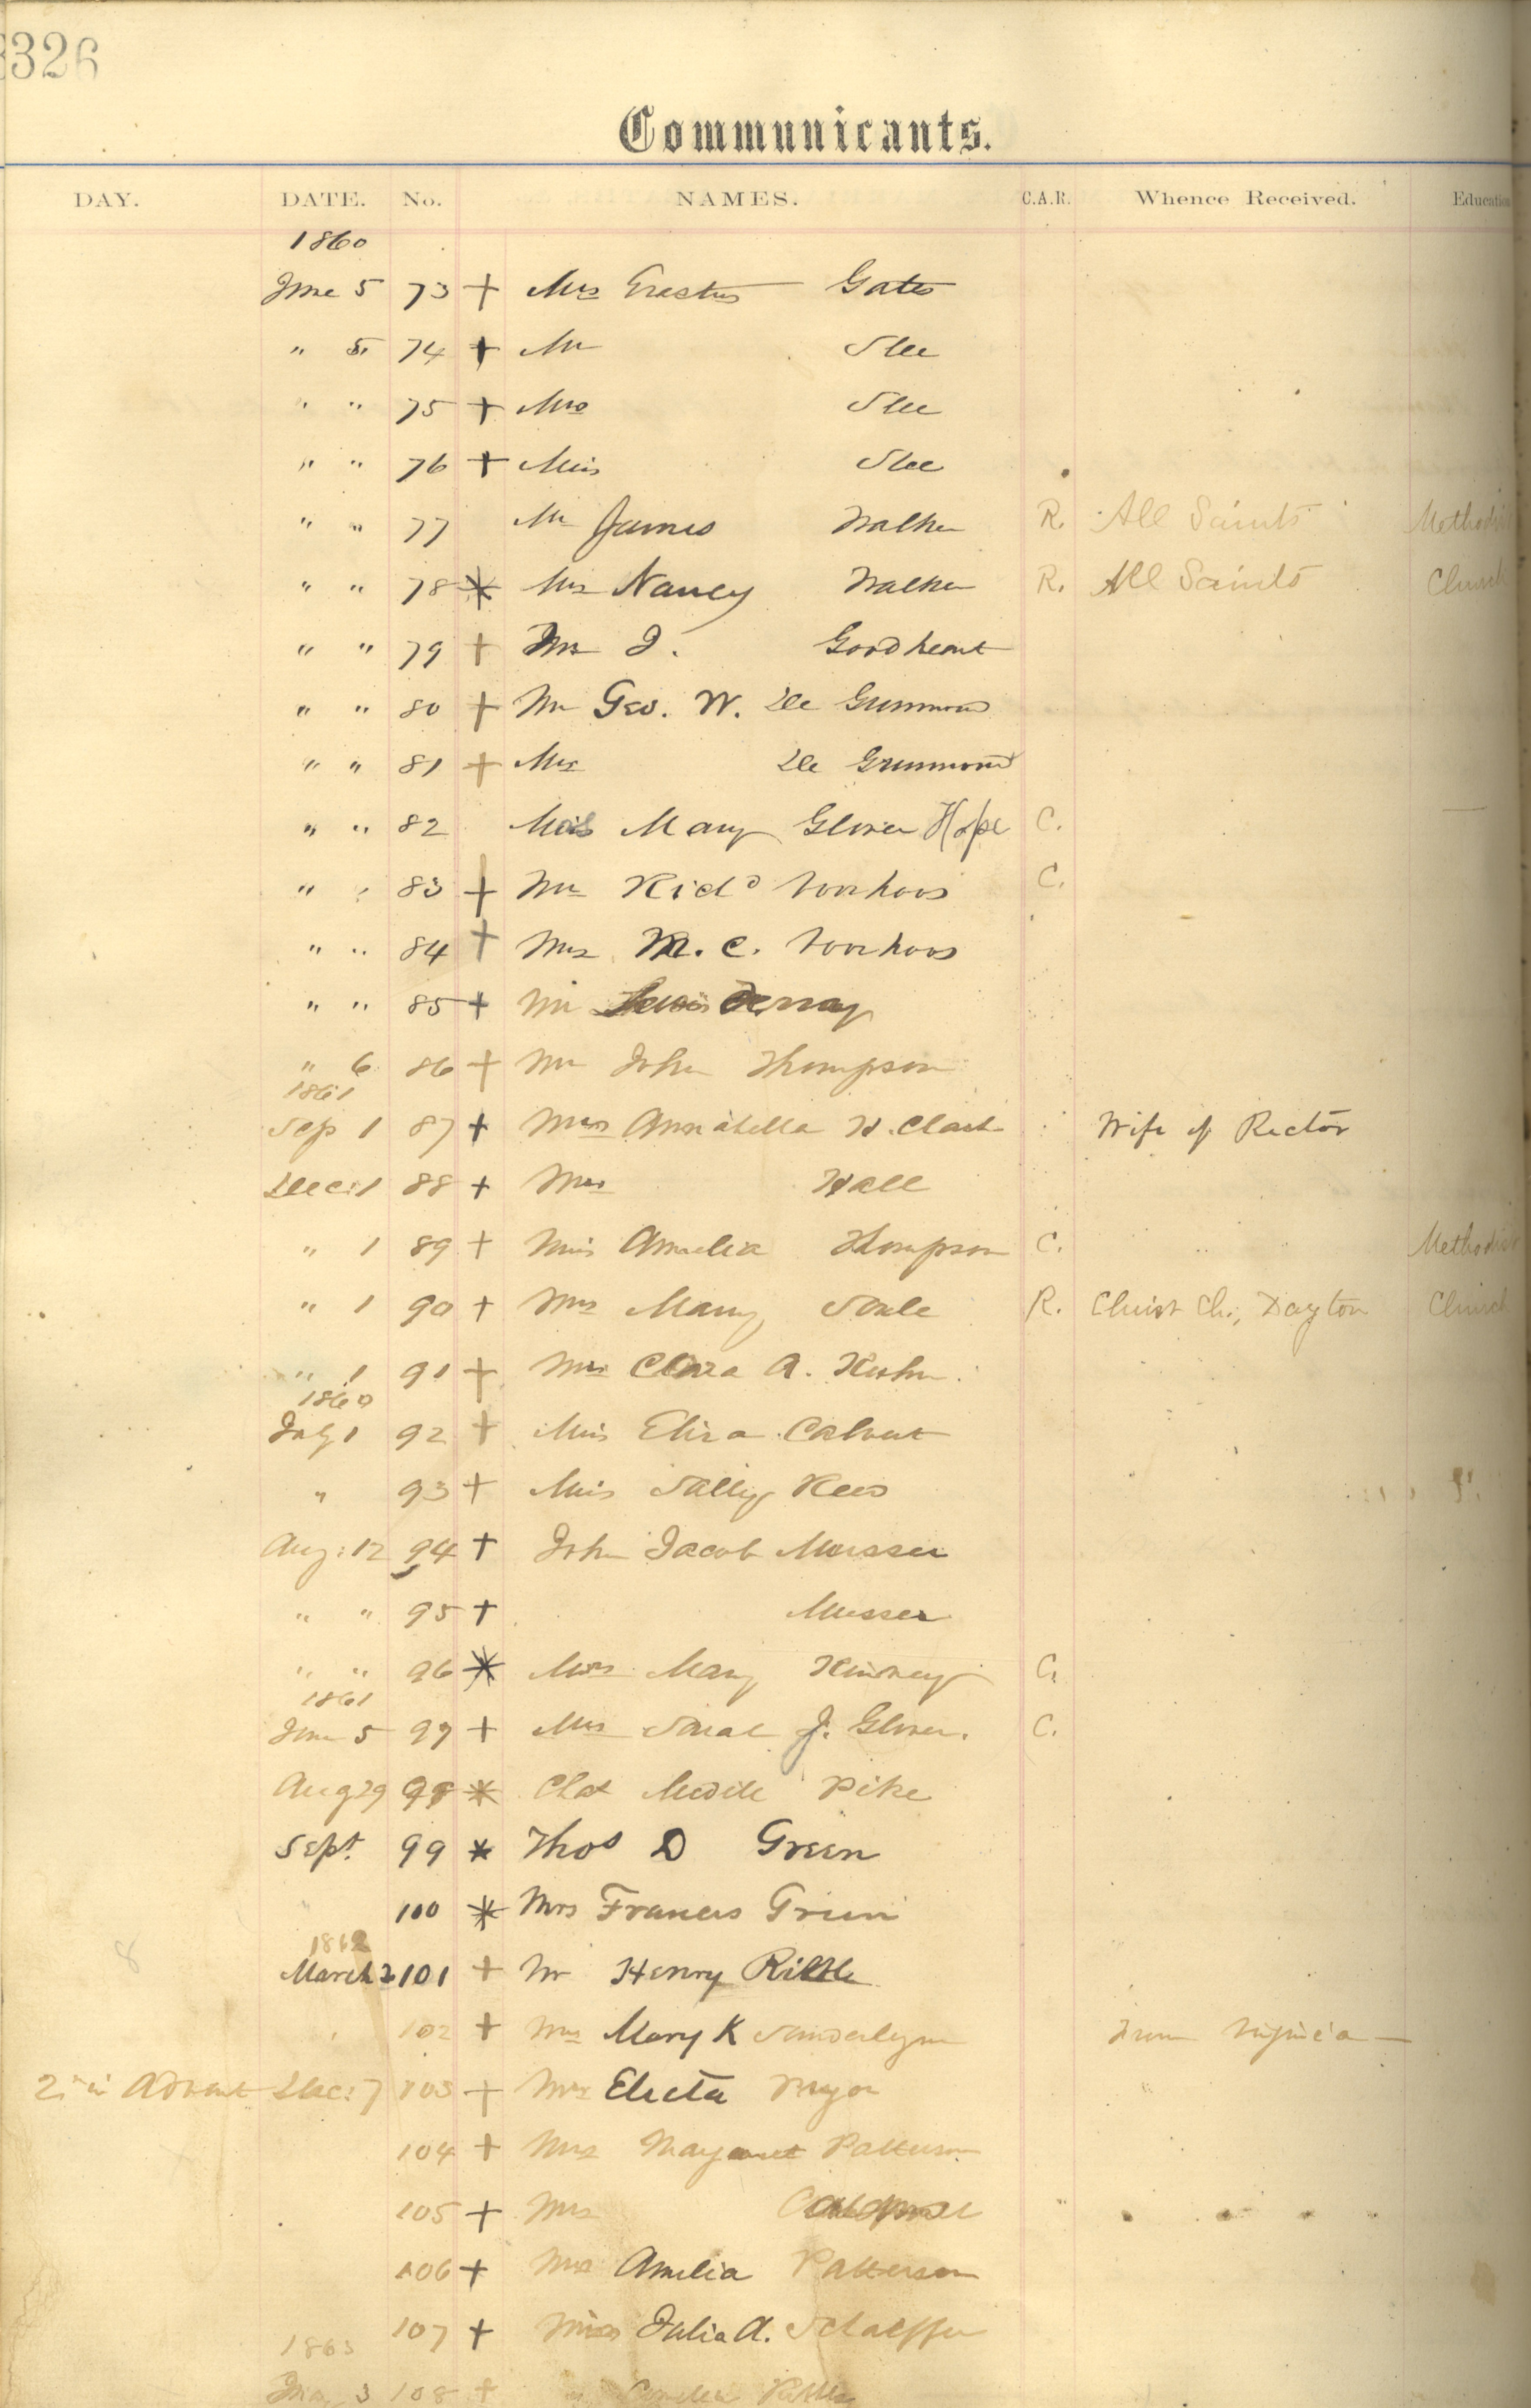 326
Communicants.
DAY. DATE. No. NAMES. C.A.R. Whence Received. Education
1860
June 5 73 + Mrs Erastus Gates
" 5 74 + Mr Slee
" " 75 + Mrs Slee
" " 76 + Miss Slee
" " 77 Mr James Walker R. All Saints Methodist
" " 78 * Mrs Nancy Walker R. All Saints Church
" " 79 + Mr J. Goodheart
" " 80 + Mr Geo. W. De Grummond
" " 81 + Mrs De Grummond
" " 82 Miss Mary Glover Hope C.
" " 83 + Mr Richd Voorhees C.
" " 84 + Mrs M. C. Voorhees
" " 85 + Mr
" 6 86 + Mr John Thompson
1861
Sep 1 87 + Mrs Annabella H. Clark Wife of Rector
Dec: 1 88 + Mrs Hall
" 1 89 + Miss Amelia Thompson C. Methodist
" 1 90 + Mrs Mary Soule R. Christ Ch., Dayton Church
" 1 91 + Mrs Clara A.
1860
July 1 92 + Miss Eliza Calvert
" 93 + Miss Sally Rees
Aug: 12 94 + John Jacob Musser
" " 95 + Musser
" " 96 * Mrs Mary Kinney C.
1861
June 5 97 + Mrs Sarah J. Glover. C.
Aug 29 98 * Pike
Sept. 99 * Thos D Green
100 * Mrs Frances Green
1862
March 2 101 + Mr Henry
102 + Mrs Mary K Sanderlynn From Virginia —
2nd in Advent Dec: 7 103 + Mrs Electa Pryor
104 + Mrs Margaret Patterson
105 + Mrs
106 + Mrs Amelia Patterson
107 + Miss Julia A. Schaeffer
1863
3 108 +
8